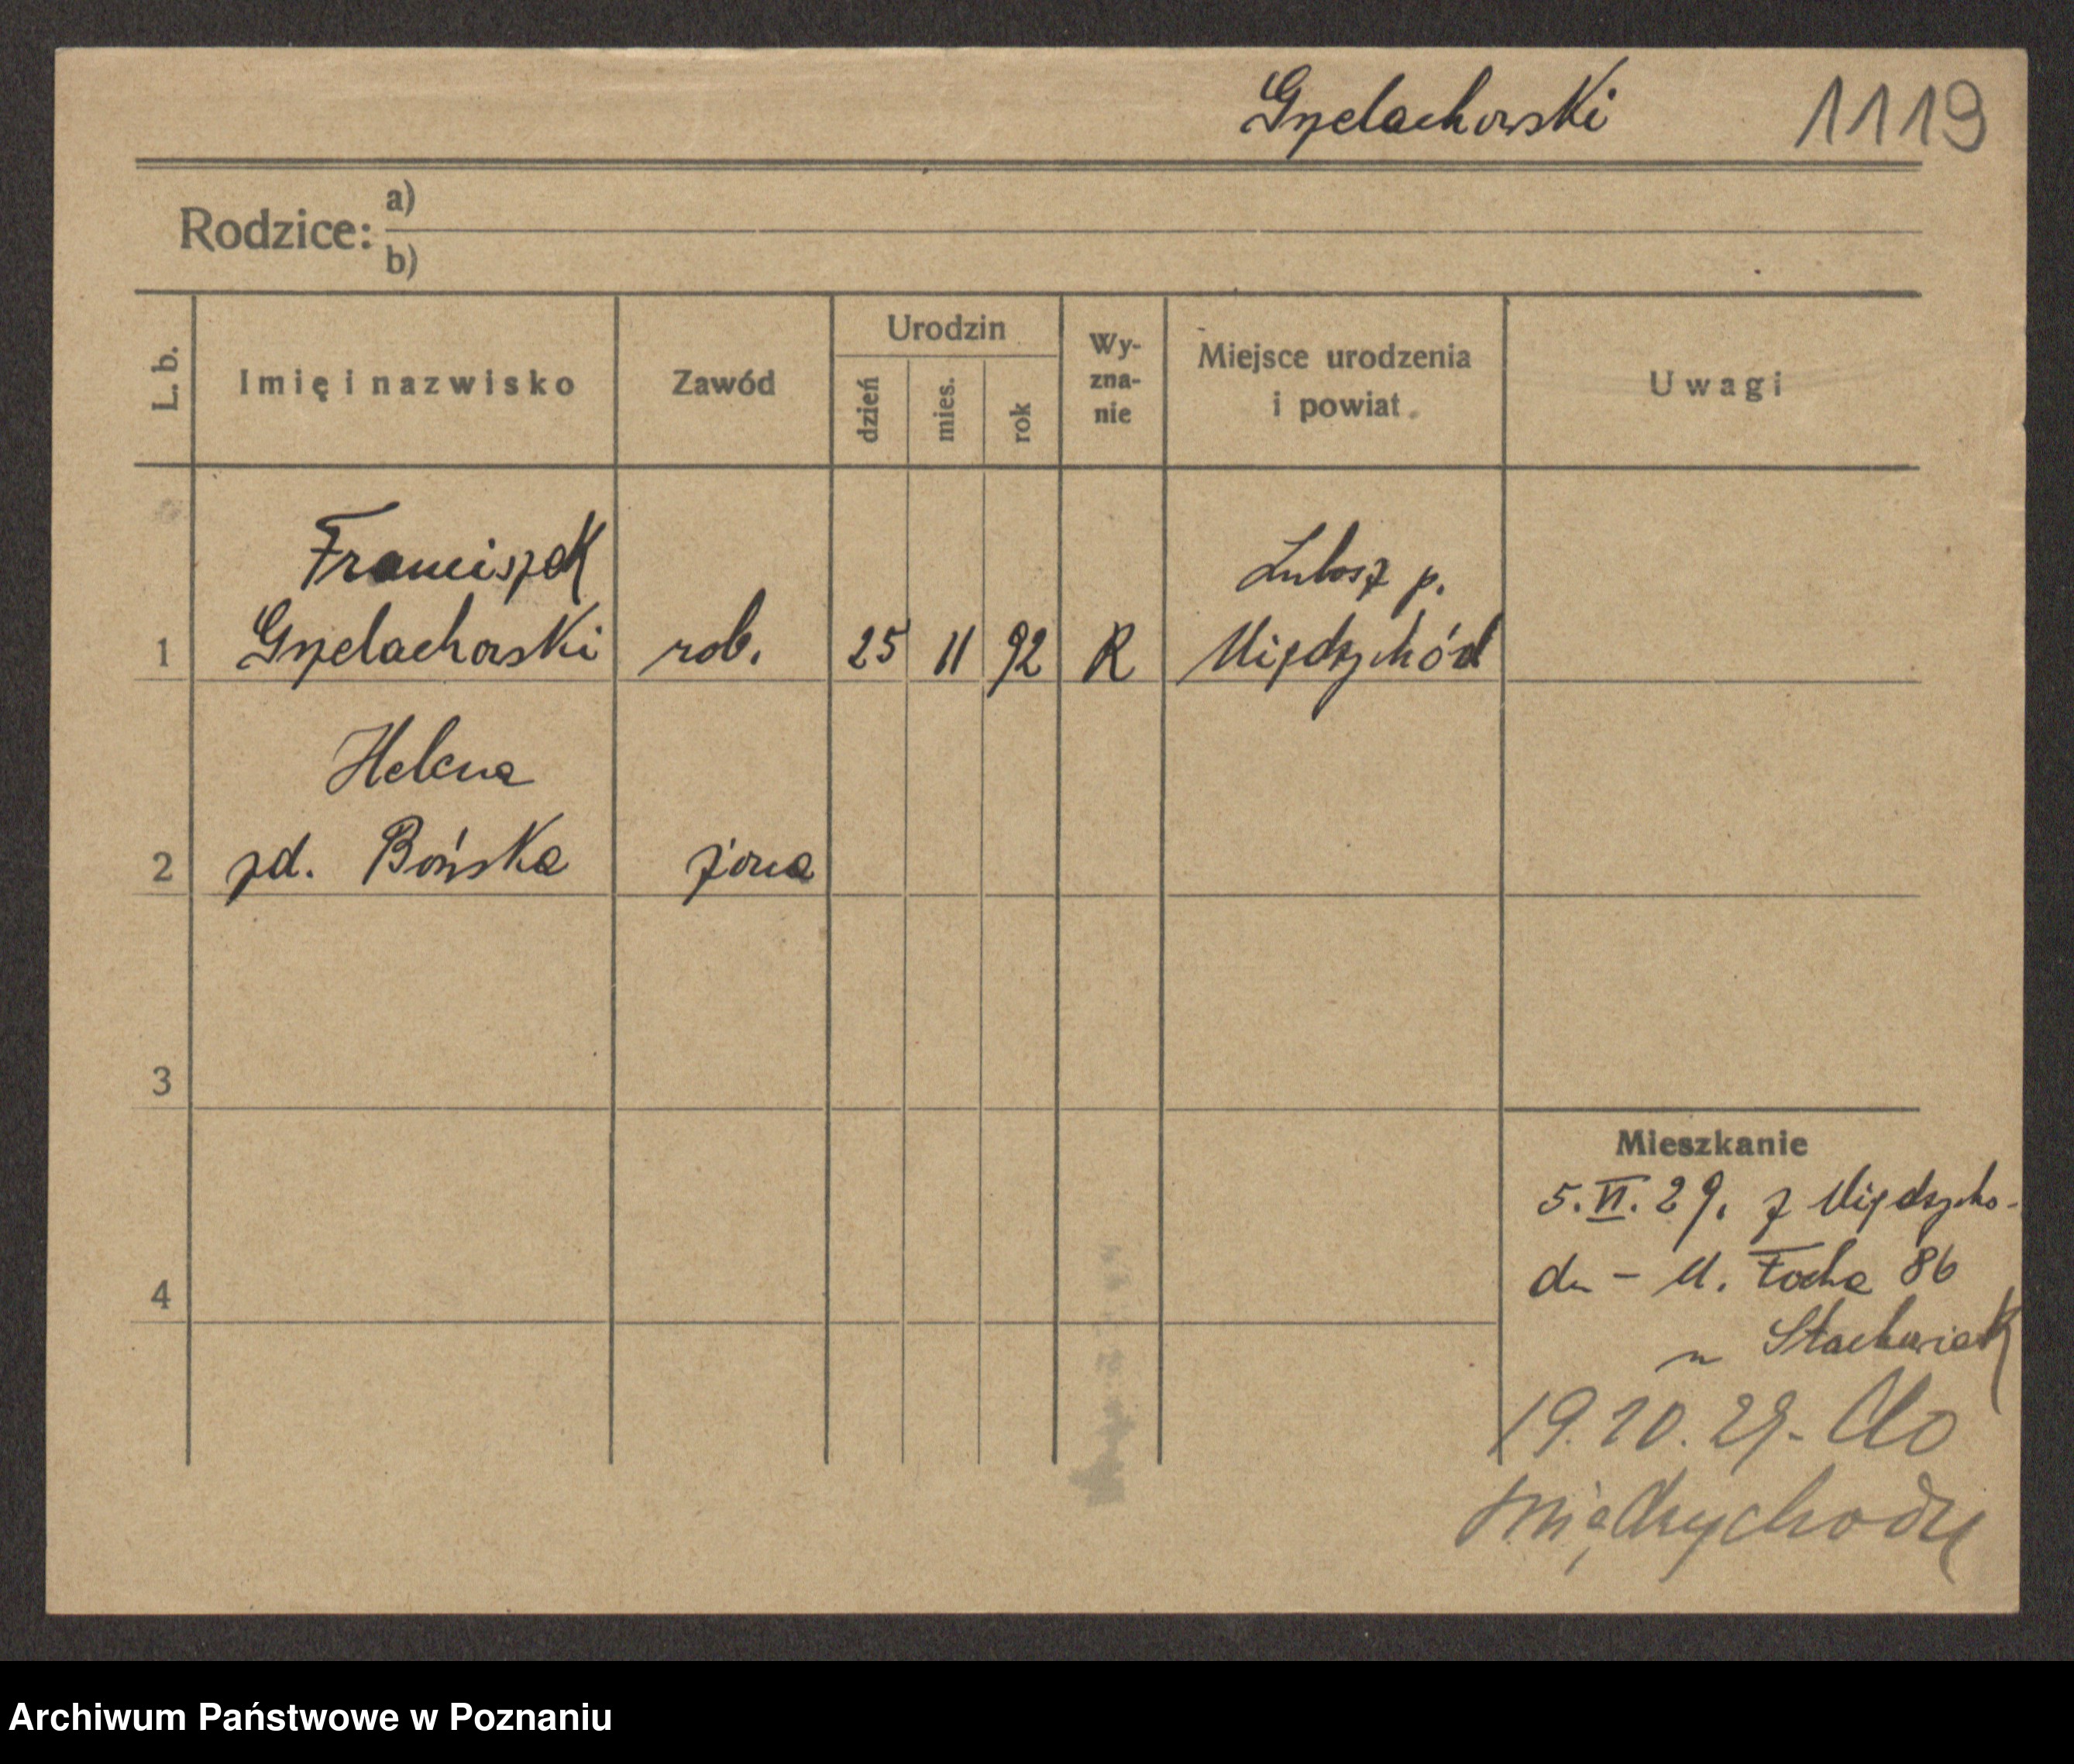 Grzelachowski 1119
Rodzice: a)
b)
L. b. Imię i nazwisko Zawód Urodzin dzień mies. rok Wy-zna-nie Miejsce urodzenia i powiat Uwagi
Franciszek Lubosz p.
1 Grzelachowski rob. 25 11 92 R Międzychód
Helena
2 zd. Bońska żona
3
4
Mieszkanie
5.VI.29. z Międzycho-
du - M. Focha 86
u Stachowiak
19.10.29- Do
Międzychodu
Archiwum Państwowe w Poznaniu